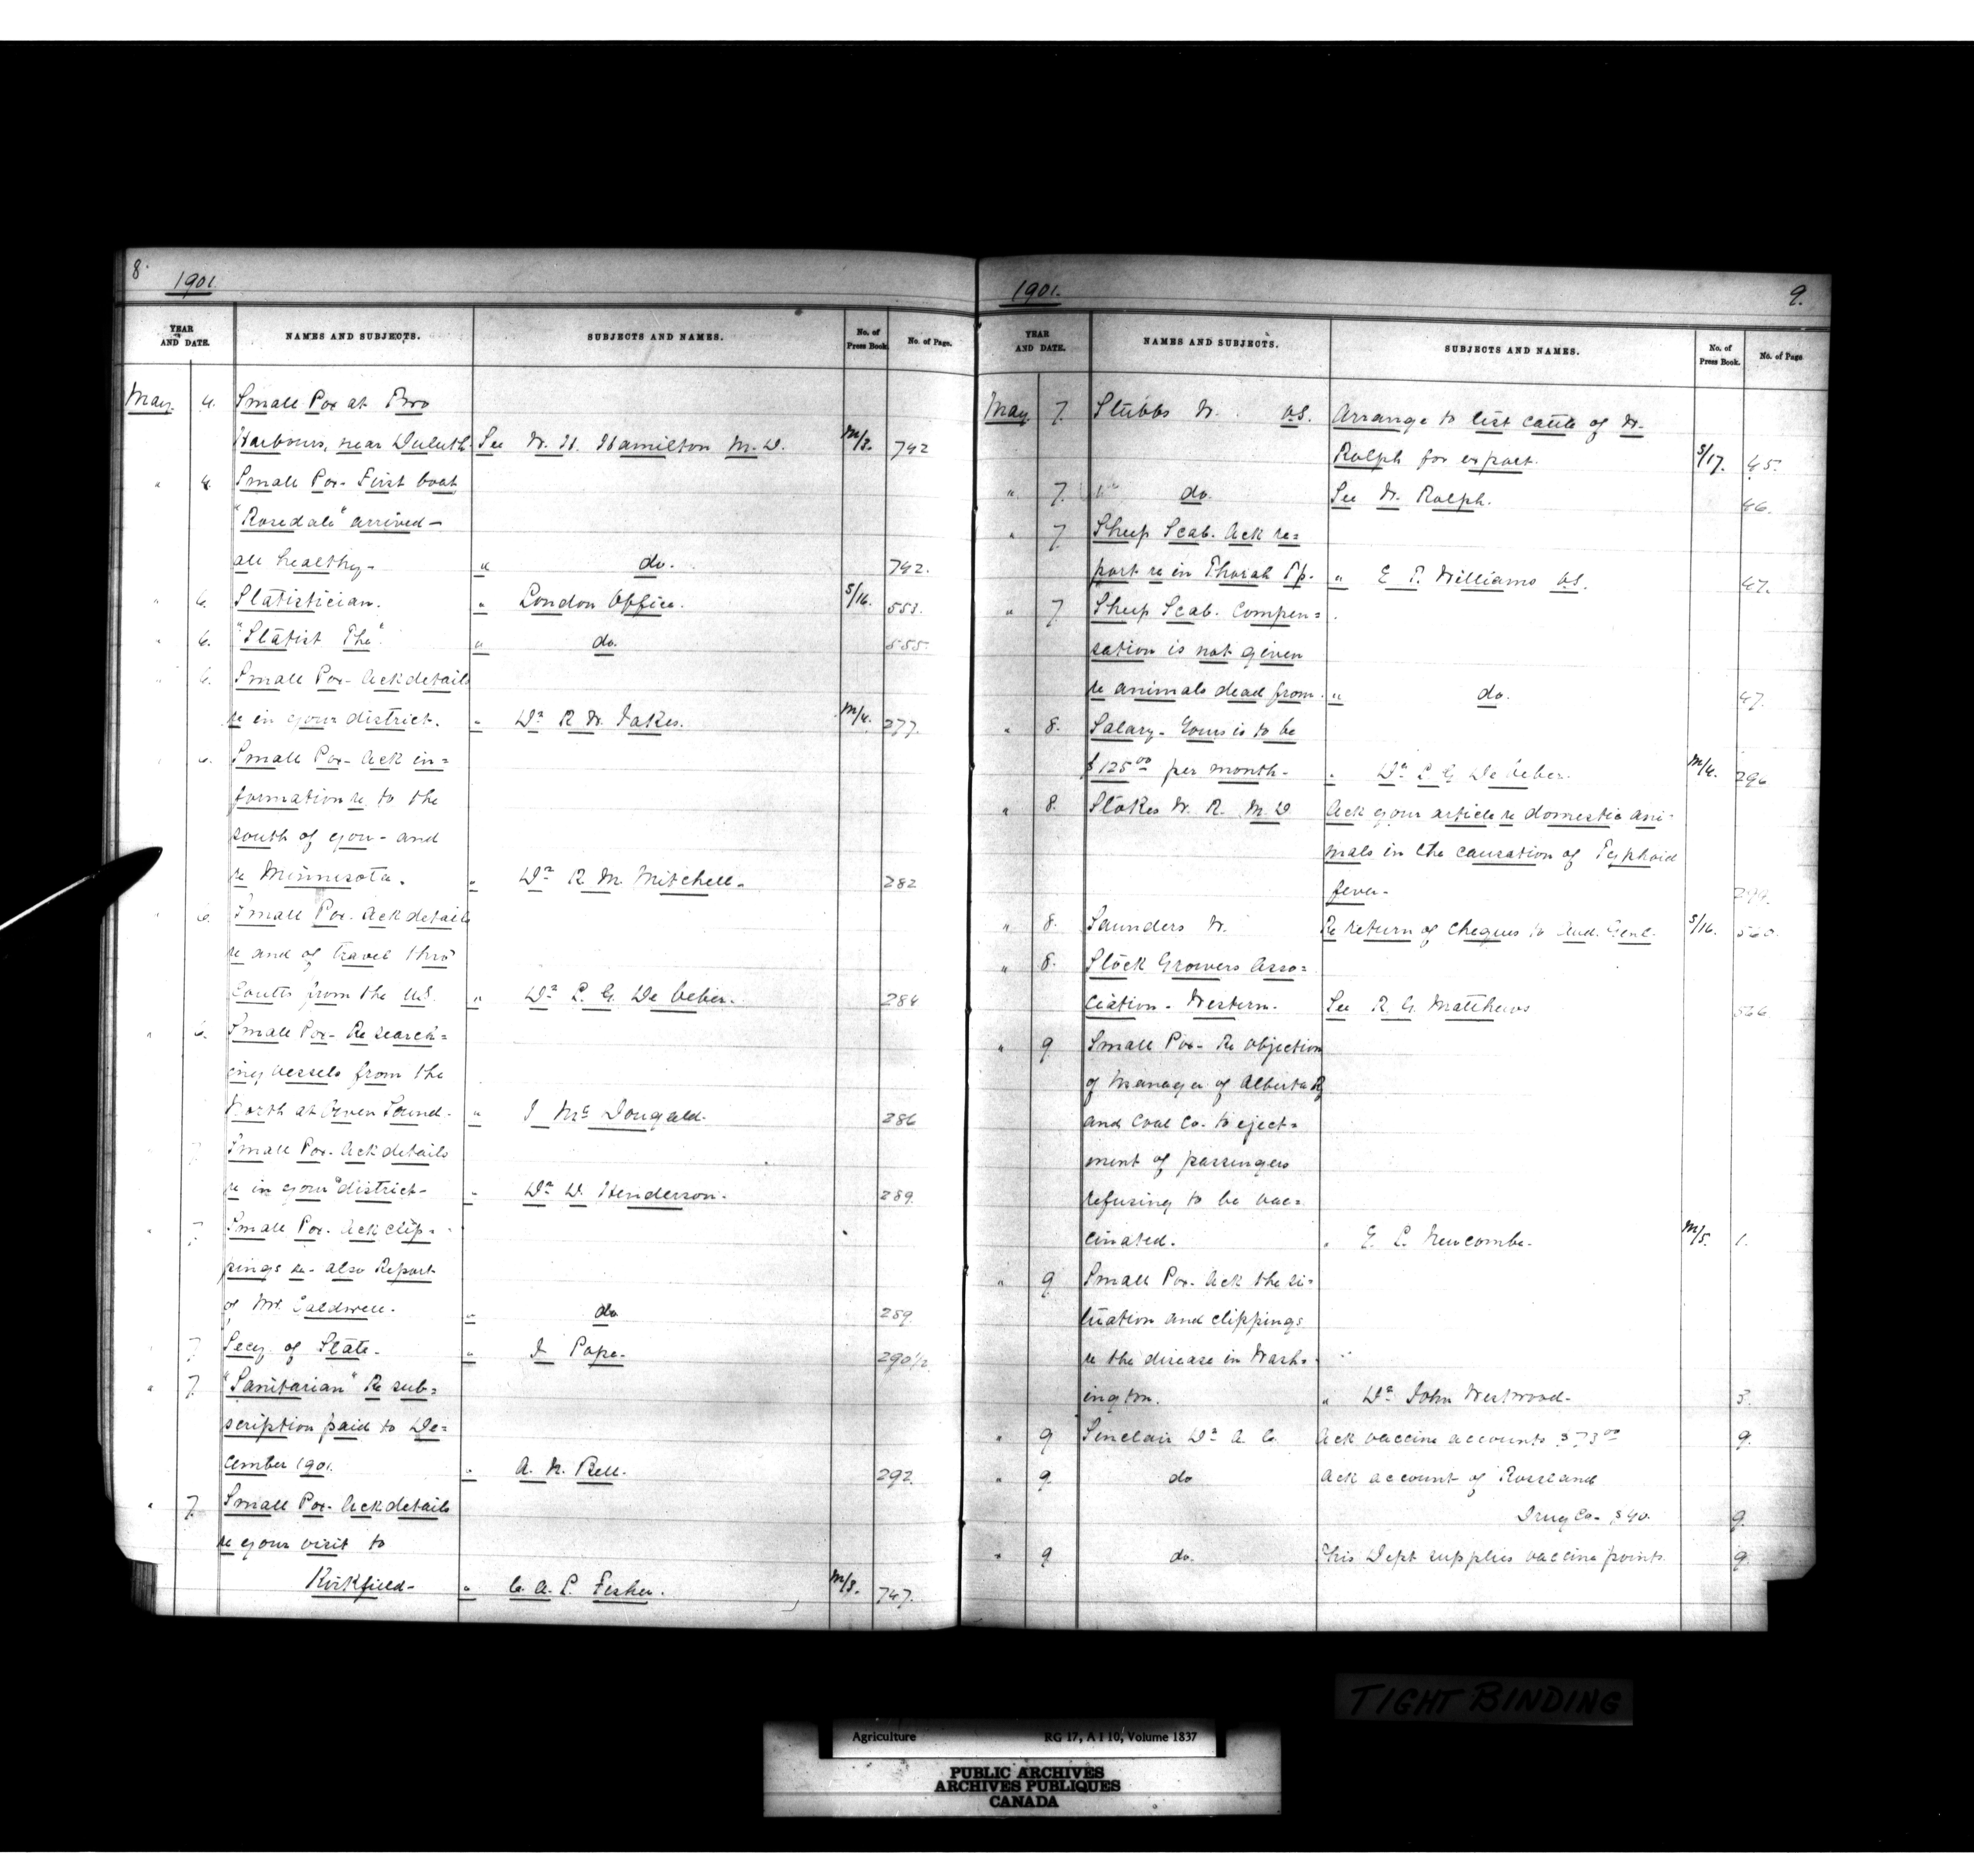 8.
1901
YEAR AND DATE. NAMES AND SUBJECTS. SUBJECTS AND NAMES. No. of Press Book. No. of Page.
May. 4. Small Pox at Two
Harbours, near Duluth. See W. H. Hamilton M. D. M/3. 742
" 4. Small Pox - First boat
"Rosedale" arrived -
all healthy - " do. 742.
" 6. Statistician. " London Office. S/16. 553.
" 6. "Statist The" " do. 555.
" 6. Small Pox - Ack details
re in your district. " Dr R. W. Jakes. M/4. 277.
" 6. Small Pox - Ack in=
formation re to the
south of you - and
re Minnesota. " Dr R. M. Mitchell. 282
" 6. Small Pox. Ack details
re and of travel thro'
Coutts from the U.S. " Dr L. G. De Veber. 284
" 6. Small Pox - Re search=
ing vessels from the
North at Owen Sound. " J McDougald. 286
" 7 Small Pox. Ack details
re in your district - " Dr D. Henderson. 289.
" 7 Small Pox. Ack clip=
pings re - also Report
of Mr. Caldwell. " do 289.
" 7 Secy. of State. " J Pope. 290 1/2.
" 7. "Sanitarian" Re sub=
scription paid to De=
cember 1901. " A. N. Bell. 292.
" 7. Small Pox. Ack details
re your visit to
Kirkfield - " C. A. L. Fisher. M/3. 747.
1901. 9.
YEAR AND DATE. NAMES AND SUBJECTS. SUBJECTS AND NAMES. No. of Press Book. No. of Page
May 7. Stubbs W. V.S. Arrange to test cattle of W.
Rolph for export. S/17. 45.
" 7. " do. See W. Rolph. 46.
" 7 Sheep Scab. Ack re=
port re in Thorah Tp. " E. P. Williams V.S. 47.
" 7 Sheep Scab. Compen=
sation is not given
re animals dead from. " do. 47.
" 8. Salary - Yours is to be
$125.00 per month - " Dr L G De Veber. M/4. 296
" 8. Stokes W. R. M. D. Ack your article re domestic ani-
mals in the causation of Typhoid
fever -
" 8. Saunders W. Re return of cheques to Aud. Genl. S/16. 560.
" 8. Stock Growers Asso=
ciation - Western. See R. G. Matthews 566
" 9 Small Pox - Re objection
of Manager of Alberta Ry
and Coal Co. to eject=
ment of passengers
refusing to be vac=
cinated. " E. L. Newcombe. M/5. 1.
" 9 Small Pox. Ack the si=
tuation and clippings
re the disease in Wash=
ington. " Dr John Westwood - 3.
" 9 Sinclair Dr A. C. Ack vaccine accounts $73.00 9.
" 9. do Ack account of Rossland
Drug Co - $40. 9.
" 9 do. This Dept supplies vaccine points. 9.
TIGHT BINDING
Agriculture RG 17, A I 10, Volume 1837
PUBLIC ARCHIVES
ARCHIVES PUBLIQUES
CANADA